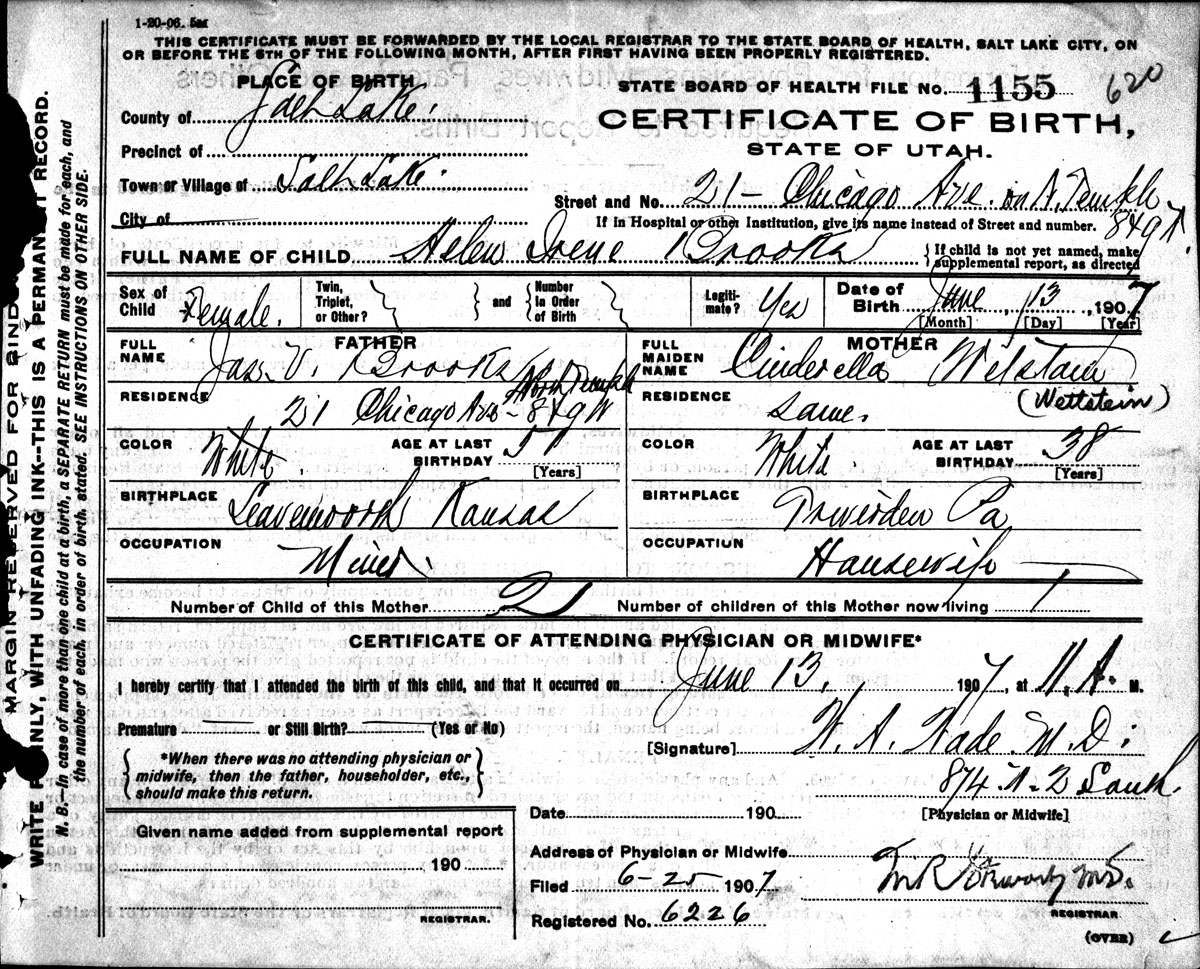 1-20-06. 5M
THIS CERTIFICATE MUST BE FORWARDED BY THE LOCAL REGISTRAR TO THE STATE BOARD OF HEALTH, SALT LAKE CITY, ON
OR BEFORE THE 5TH OF THE FOLLOWING MONTH, AFTER FIRST HAVING BEEN PROPERLY REGISTERED.
PLACE OF BIRTH
STATE BOARD OF HEALTH FILE No. 1155 620
County of Salt Lake.
CERTIFICATE OF BIRTH,
Precinct of
STATE OF UTAH.
Town or Village of Salt Lake.
Street and No. 21- Chicago Ave. on N. Temple
City of
If in Hospital or other Institution, give its name instead of Street and number. 8&9W.
FULL NAME OF CHILD Helen Irene Brooks
If child is not yet named, make
supplemental report, as directed
Sex of Child Female.
Twin, Triplet, or Other? and Number in Order of Birth
Legitimate? Yes
Date of Birth June 13, 1907
[Month] [Day] [Year]
FATHER
FULL NAME Jas. V. Brooks
RESIDENCE North Temple
21 Chicago Ave - 8&9W
COLOR White.
AGE AT LAST BIRTHDAY 51
[Years]
BIRTHPLACE Leavenworth Kansas
OCCUPATION Miner.
MOTHER
FULL MAIDEN NAME Cinderella Wetstain
(Wettstein)
RESIDENCE Same.
COLOR White
AGE AT LAST BIRTHDAY 38
[Years]
BIRTHPLACE Pa
OCCUPATION Housewife
Number of Child of this Mother 2 Number of children of this Mother now living 1
CERTIFICATE OF ATTENDING PHYSICIAN OR MIDWIFE*
I hereby certify that I attended the birth of this child, and that it occurred on June 13, 1907, at 11. A. M.
Premature or Still Birth? (Yes or No)
[Signature] W. A. Wade M.D.
*When there was no attending physician or
midwife, then the father, householder, etc.,
should make this return.
874. W. 2 South.
Date 190 [Physician or Midwife]
Given name added from supplemental report
190
REGISTRAR.
Address of Physician or Midwife
Filed 6-25 1907
M.D.
REGISTRAR.
Registered No. 6226
(OVER)
MARGIN RESERVED FOR BIND
WRITE PLAINLY, WITH UNFADING INK--THIS IS A PERMANENT RECORD.
N. B.--In case of more than one child at a birth, a SEPARATE RETURN must be made for each, and
the number of each, in order of birth, stated. SEE INSTRUCTIONS ON OTHER SIDE.